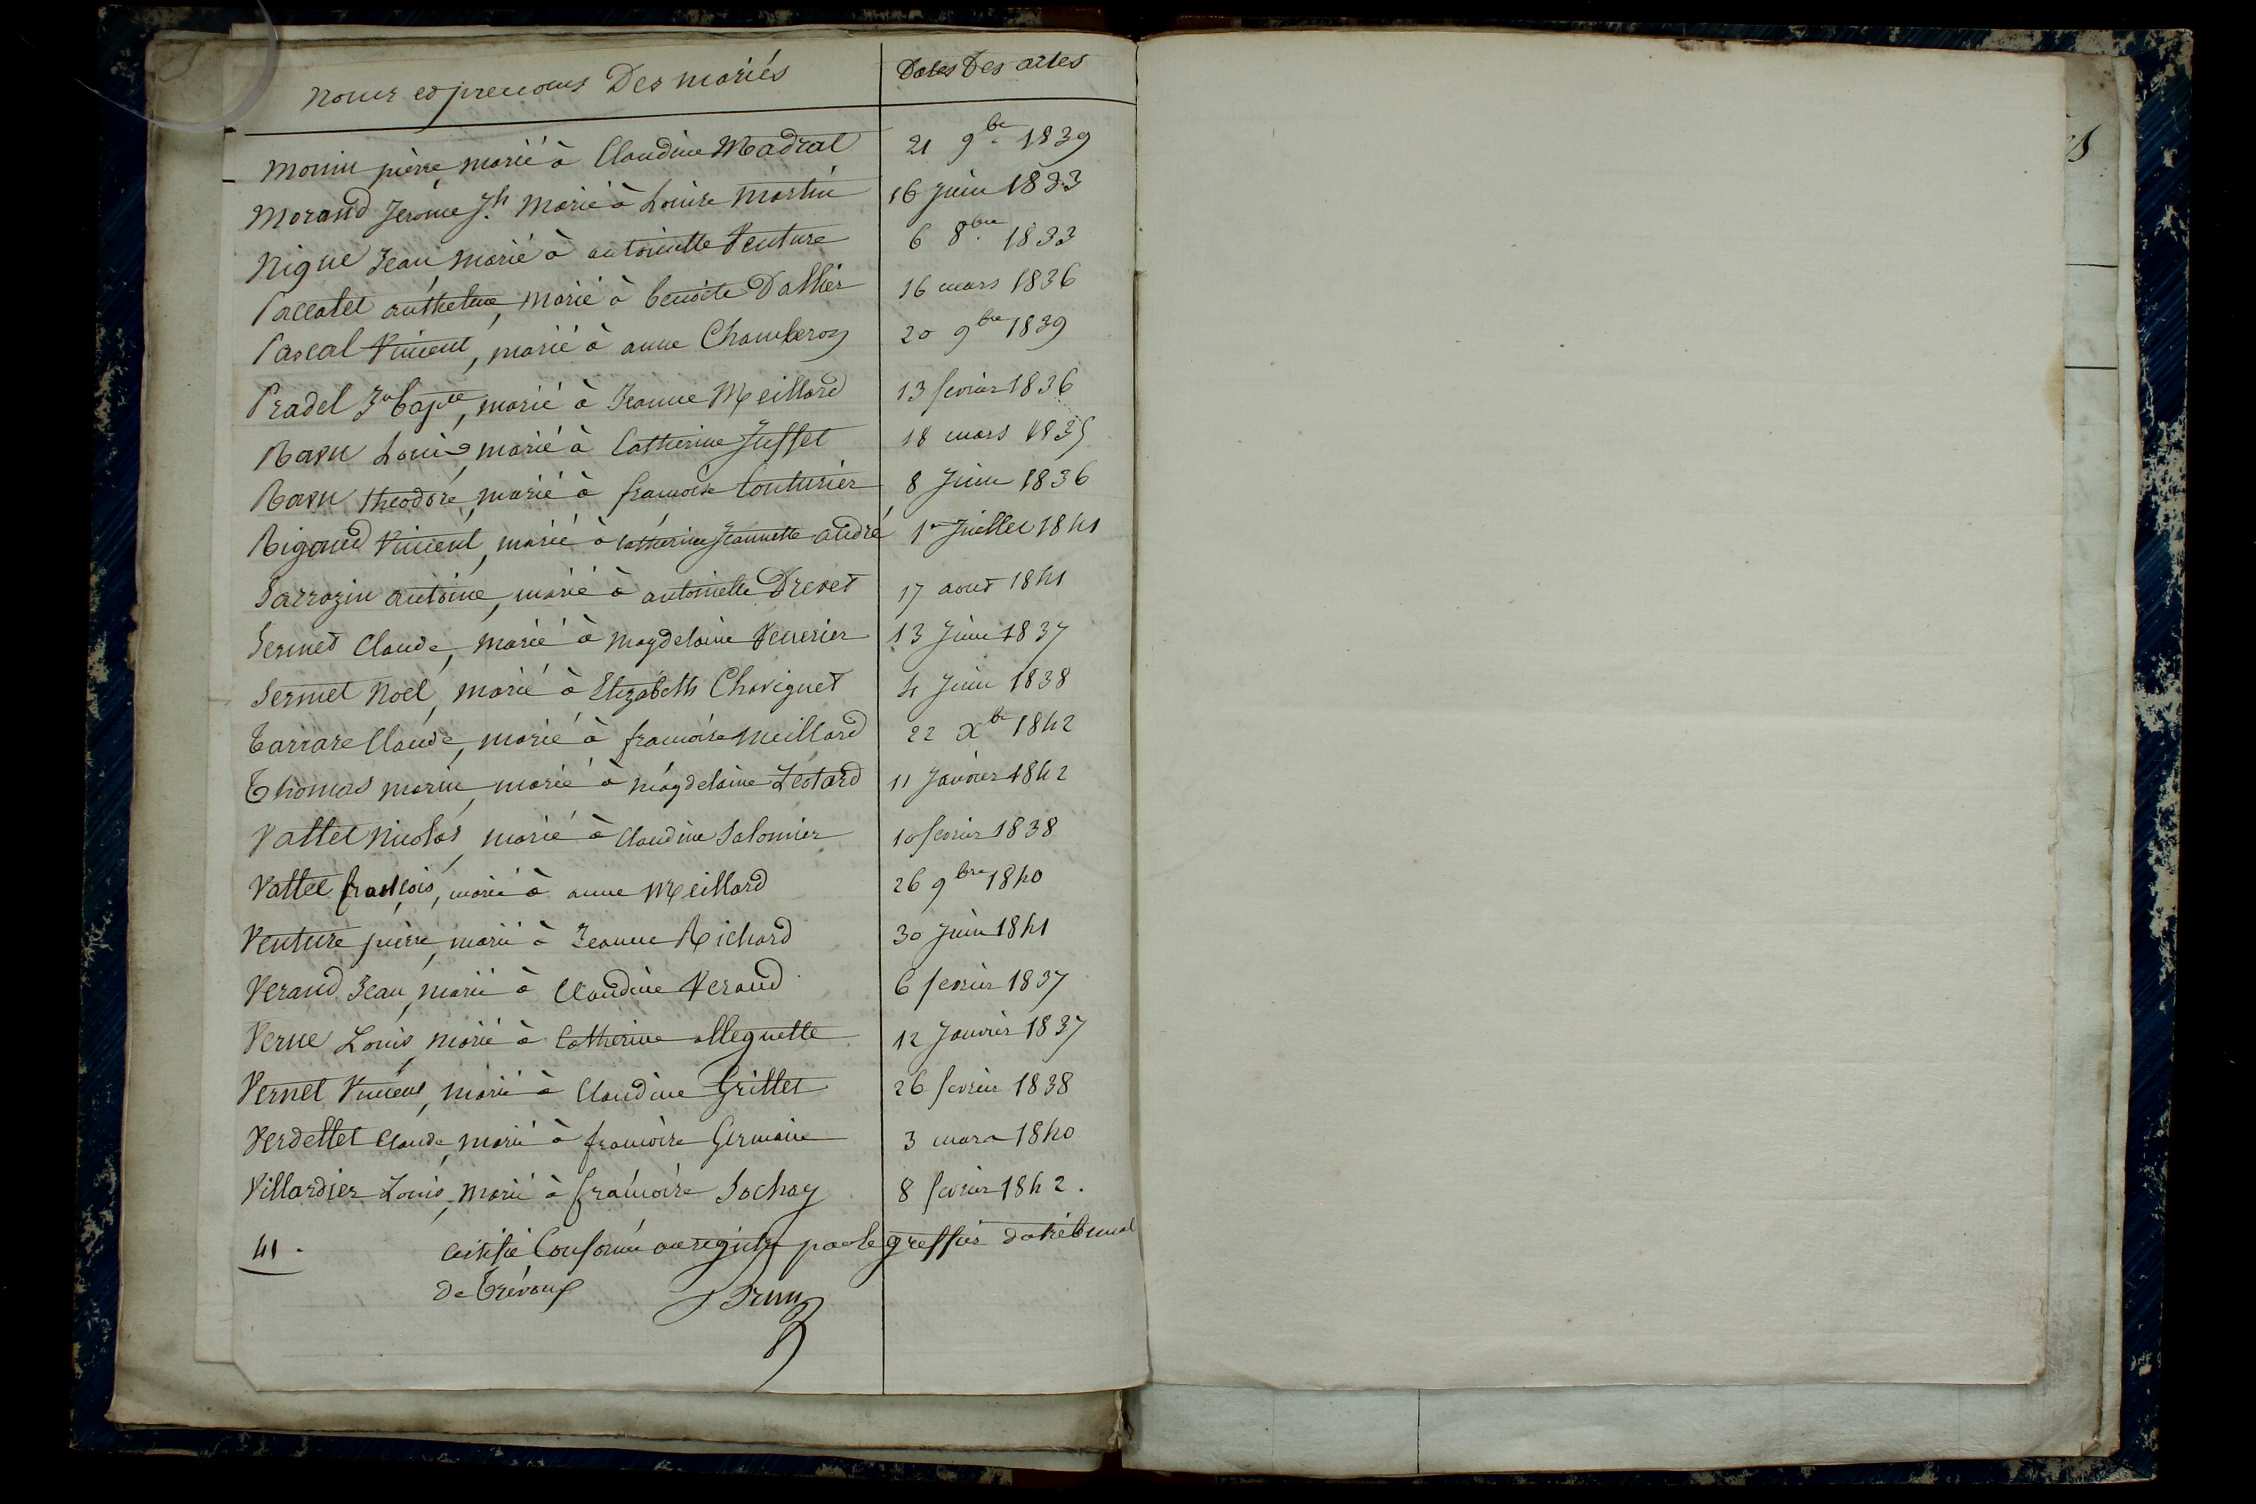 Noms et prenoms Des mariés Dates Des actes
Monin pierre, marié à Claudine Madrat 21 9bre 1839
Morand Jerome Jh. marié à Louise Martin 16 Juin 1833
Nigue Jean marié à antoinette Venture 6 8bre 1833
Paccalet anthelme, marié à benoite Dallier 16 mars 1836
Pascal Vincent, marié à anne Chamberoy 20 9bre 1839
Pradel Jn bapte, marié à Jeanne Meillard 13 fevrier 1836
Ravu Louis, marié à Catherine Juffet 18 mars 1835
Ravu theodore, marié à francoise Couturier 8 Juin 1836
Rigaud Vincent, marié à Catherine Jeannette andré 1er Juillet 1841
Sarrazin antoine, marié à antoinette Drevet 17 aout 1841
Sermet Claude, marié à Magdelaine Venerier 13 Juin 1837
Sermet Noël, marié à Elizabeth Chavignet 4 Juin 1838
Tarrare Claude, marié à francoise Meillard 22 Xbre 1842
Thomas marin, marié à Magdelaine Leotard 11 Janvier 1842
Vallet Nicolas, marié à Claudine Salomier 10 fevrier 1838
Vallet françois, marié à anne Meillard 26 9bre 1840
Venture pierre, marié à Jeanne Richard 30 Juin 1841
Verand Jean, marié à Claudine Verand 6 fevrier 1837
Verne Louis, marié à Catherine alleguette 12 Janvier 1837
Vernet Vincent, marié à Claudine Grillet 26 fevrier 1838
Verdellet Claude, marié à francoise Germain 3 mars 1840
Villardier Louis, marié à francoise Sochay 8 fevrier 1842.
41. Certifié Conforme au registre par le greffier du tribunal
de Trévoux